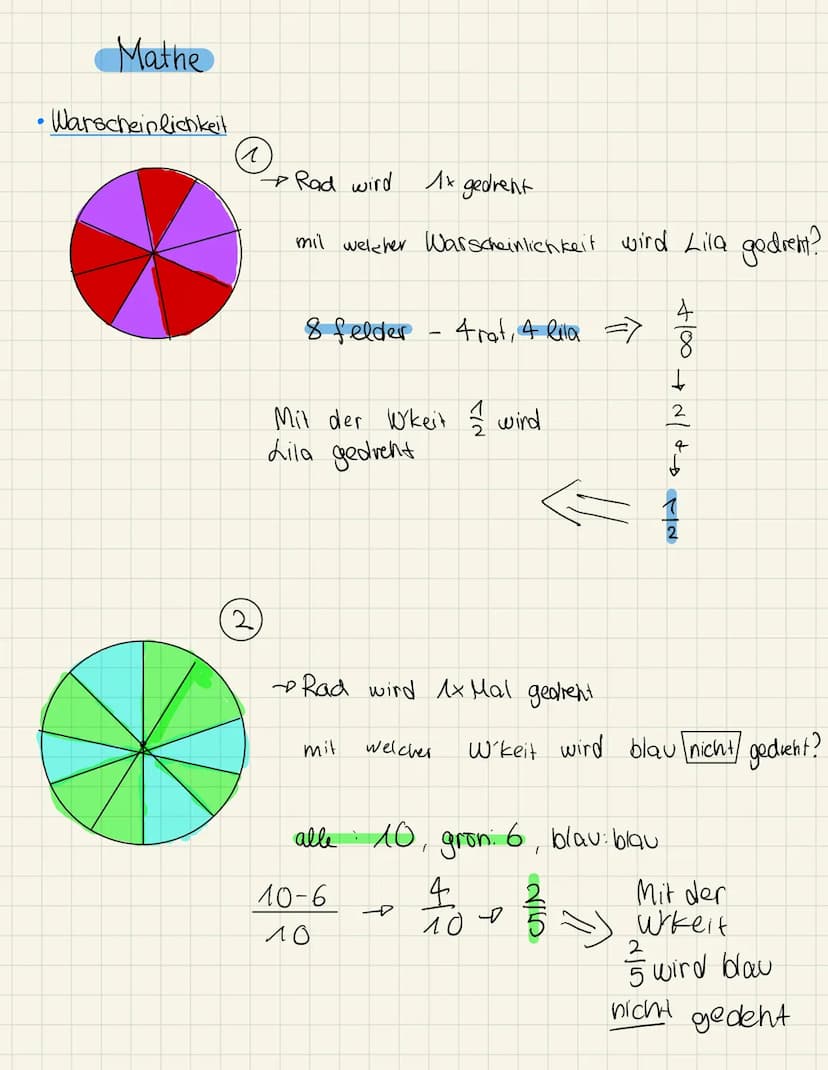 Mathe
• Warscheinlichkeit
1
→ Rad wird 1x gedreht
mit welcher Warscheinlichkeit wird Lila gedreht?
8 felder - 4 rot, 4 lila ⇒ 4/8
↓
2/4
↓
1/2
Mit der W'keit 1/2 wird
Lila gedreht
2
→ Rad wird 1x Mal gedreht
mit welcher W'keit wird blau nicht gedreht?
alle: 10, grün: 6, blau: blau
10-6/10 → 4/10 → 2/5 ⇒ Mit der
W'keit
2/5 wird blau
nicht gedeht